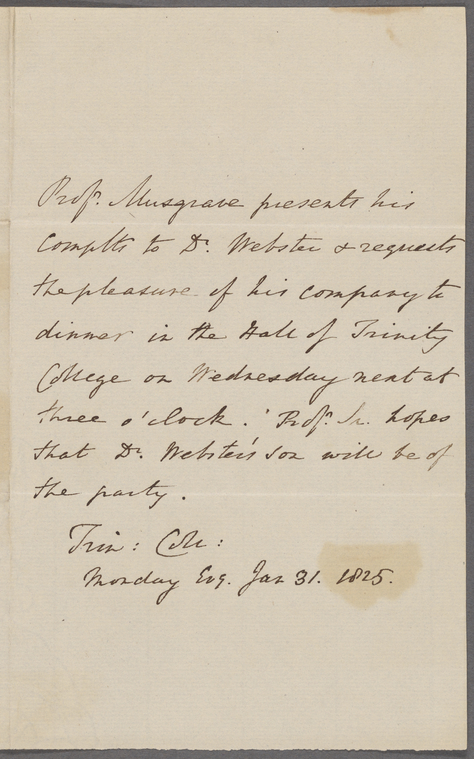 Prof.r Musgrave presents his
Complts to Dr. Webster & requests
the pleasure of his company to
dinner in the Hall of Trinity
College on Wednesday next at
three o'clock. Prof.r hopes
that Dr. Webster's son will be of
the party.
Trin: Coll:
Monday Evg. Jan 31. 1825.